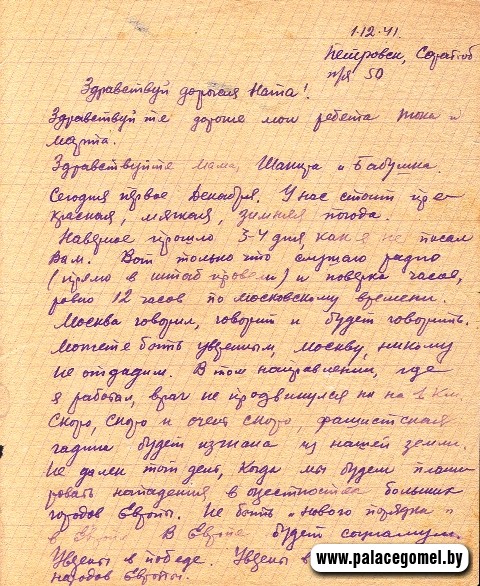 1.12.41.
Петровск, Саратов
п/я 50
Здравствуй дорогая Ната!
Здравствуйте дорогие мои ребята и
Здравствуйте мама, и Бабушка.
Сегодня первое Декабря. У нас стоит пре-
красная, мягкая, зимняя погода.
Наверное прошло 3-4 дня, как я не писал
Вам. Вот только что слушаю радио
(прямо в штаб провели) и поверка часов,
ровно 12 часов по московскому времени.
Москва говорил, говорит и будет говорить.
Можете быть уверенным, Москву, никому
не отдадим. В том направлении, где
я работал, враг не продвинулся ни на 1 км.
Скоро, скоро и очень скоро, фашистская
гадина будет изгнана из нашей земли.
Не далек тот день, когда мы будем плани
ровать нападения, в окрестностях больших
городов Европы. Не быть "нового порядка"
в Европе. В Европе будет социализм.
Уверены в победе. Уверены в
народов Европы.
www.palacegomel.by